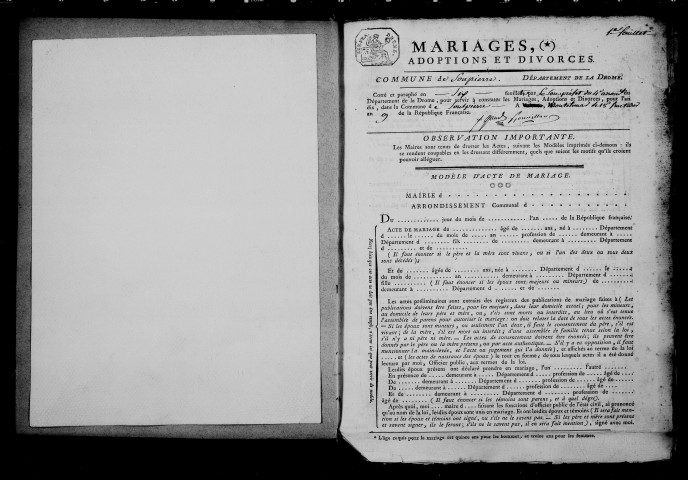 1er feuillet
MARIAGES, (*)
ADOPTIONS ET DIVORCES.
COMMUNE de Soupierre. DÉPARTEMENT DE LA DROME.
Cotté et paraphé en Six feuillets, par le Sous préfet du
Département de la Drome, pour servir à constater les Mariages, Adoptions et Divorces, pour l'an
dix, dans la Commune d de Soupierre A
an 9 de la République Française.
OBSERVATION IMPORTANTE.
Les Maires sont tenus de dresser les Actes, suivant les Modèles imprimés ci-dessous : ils
se rendent coupables en les dressant différemment, quels que soient les motifs qu'ils croient
pouvoir alléguer.
MODÈLE D'ACTE DE MARIAGE.
MAIRIE d
ARRONDISSEMENT Communal d
Du ............ jour du mois de ............ l'an ..... de la République française;
ACTE DE MARIAGE de ........ âgé de ...... ans, né à ...... Département
d ..... le ..... du mois de ..... an ..... profession de ..... demeurant à .....
Département d ..... fils ..... de ..... demeurant à ..... Département d .....
et de .....
( Il faut énoncer si le père et la mère sont vivans, ou si l'un des deux ou tous deux
sont décédés );
Et de ..... âgée de ..... ans, née à ..... Département d ..... le .....
du mois de ..... an ..... demeurant à ..... Département d .....
fille ..... ( Il faut énoncer si les époux sont majeurs ou mineurs ) de .....
demeurant à ..... Département d ..... et de .....
Les actes préliminaires sont extraits des registres des publications de mariage faites à ( Les
publications doivent être faites, pour les majeurs, dans leur domicile actuel; pour les mineurs,
au domicile de leurs père et mère, ou, s'ils sont morts ou interdits, au lieu où s'est tenue
l'assemblée de parens pour autoriser le mariage: on doit relater la date de tous les actes énoncés.
— Si les époux sont mineurs, ou seulement l'un deux, il faut le consentement du père, s'il est
vivant; de la mère, s'il est mort ou interdit; d'une assemblée de famille tenue selon la loi,
s'il n'y a ni père ni mère. — Les actes de consentement doivent être énoncés; ils peuvent être
donnés par le père ou la mère présens, ou par acte authentique. — S'il y a eu opposition, il faut
mentionner la mainlevée, et l'acte ou jugement qui l'a donnée ), et affichés au terme de la loi
— ( et les actes de naissance des époux ) le tout en forme; de tous lesquels actes il a été donné
lecture par moi, Officier public, aux termes de la loi.
Lesdits époux présens ont déclaré prendre en mariage, l'un ..... l'autre .....
En présence de ..... demeurant à ..... Département d ..... profession de ..... âgé de .....
De ..... demeurant à ..... Département d ..... profession de ..... âgé de .....
De ..... demeurant à ..... Département d ..... profession de ..... âgé de .....
Et de ..... demeurant à ..... Département d ..... profession de .....
âgé de ..... ( Il faut énoncer si les témoins sont parens, et à quel degré ).
Après quoi, moi ..... maire d ..... faisant les fonctions d'officier public de l'état civil, ai prononcé
qu'au nom de la loi, lesdits époux sont unis en mariage. Et ont lesdits époux et témoins ( Il sera fait men-
tion si les époux et témoins ont signé, ou s'ils ne le savent pas. — Si les père et mère sont présens
et savent signer, ils le feront; s'ils ne le savent pas, il en sera fait mention ), signé avec moi.
* L'âge requis pour le mariage est quinze ans pour les hommes, et treize ans pour les femmes.